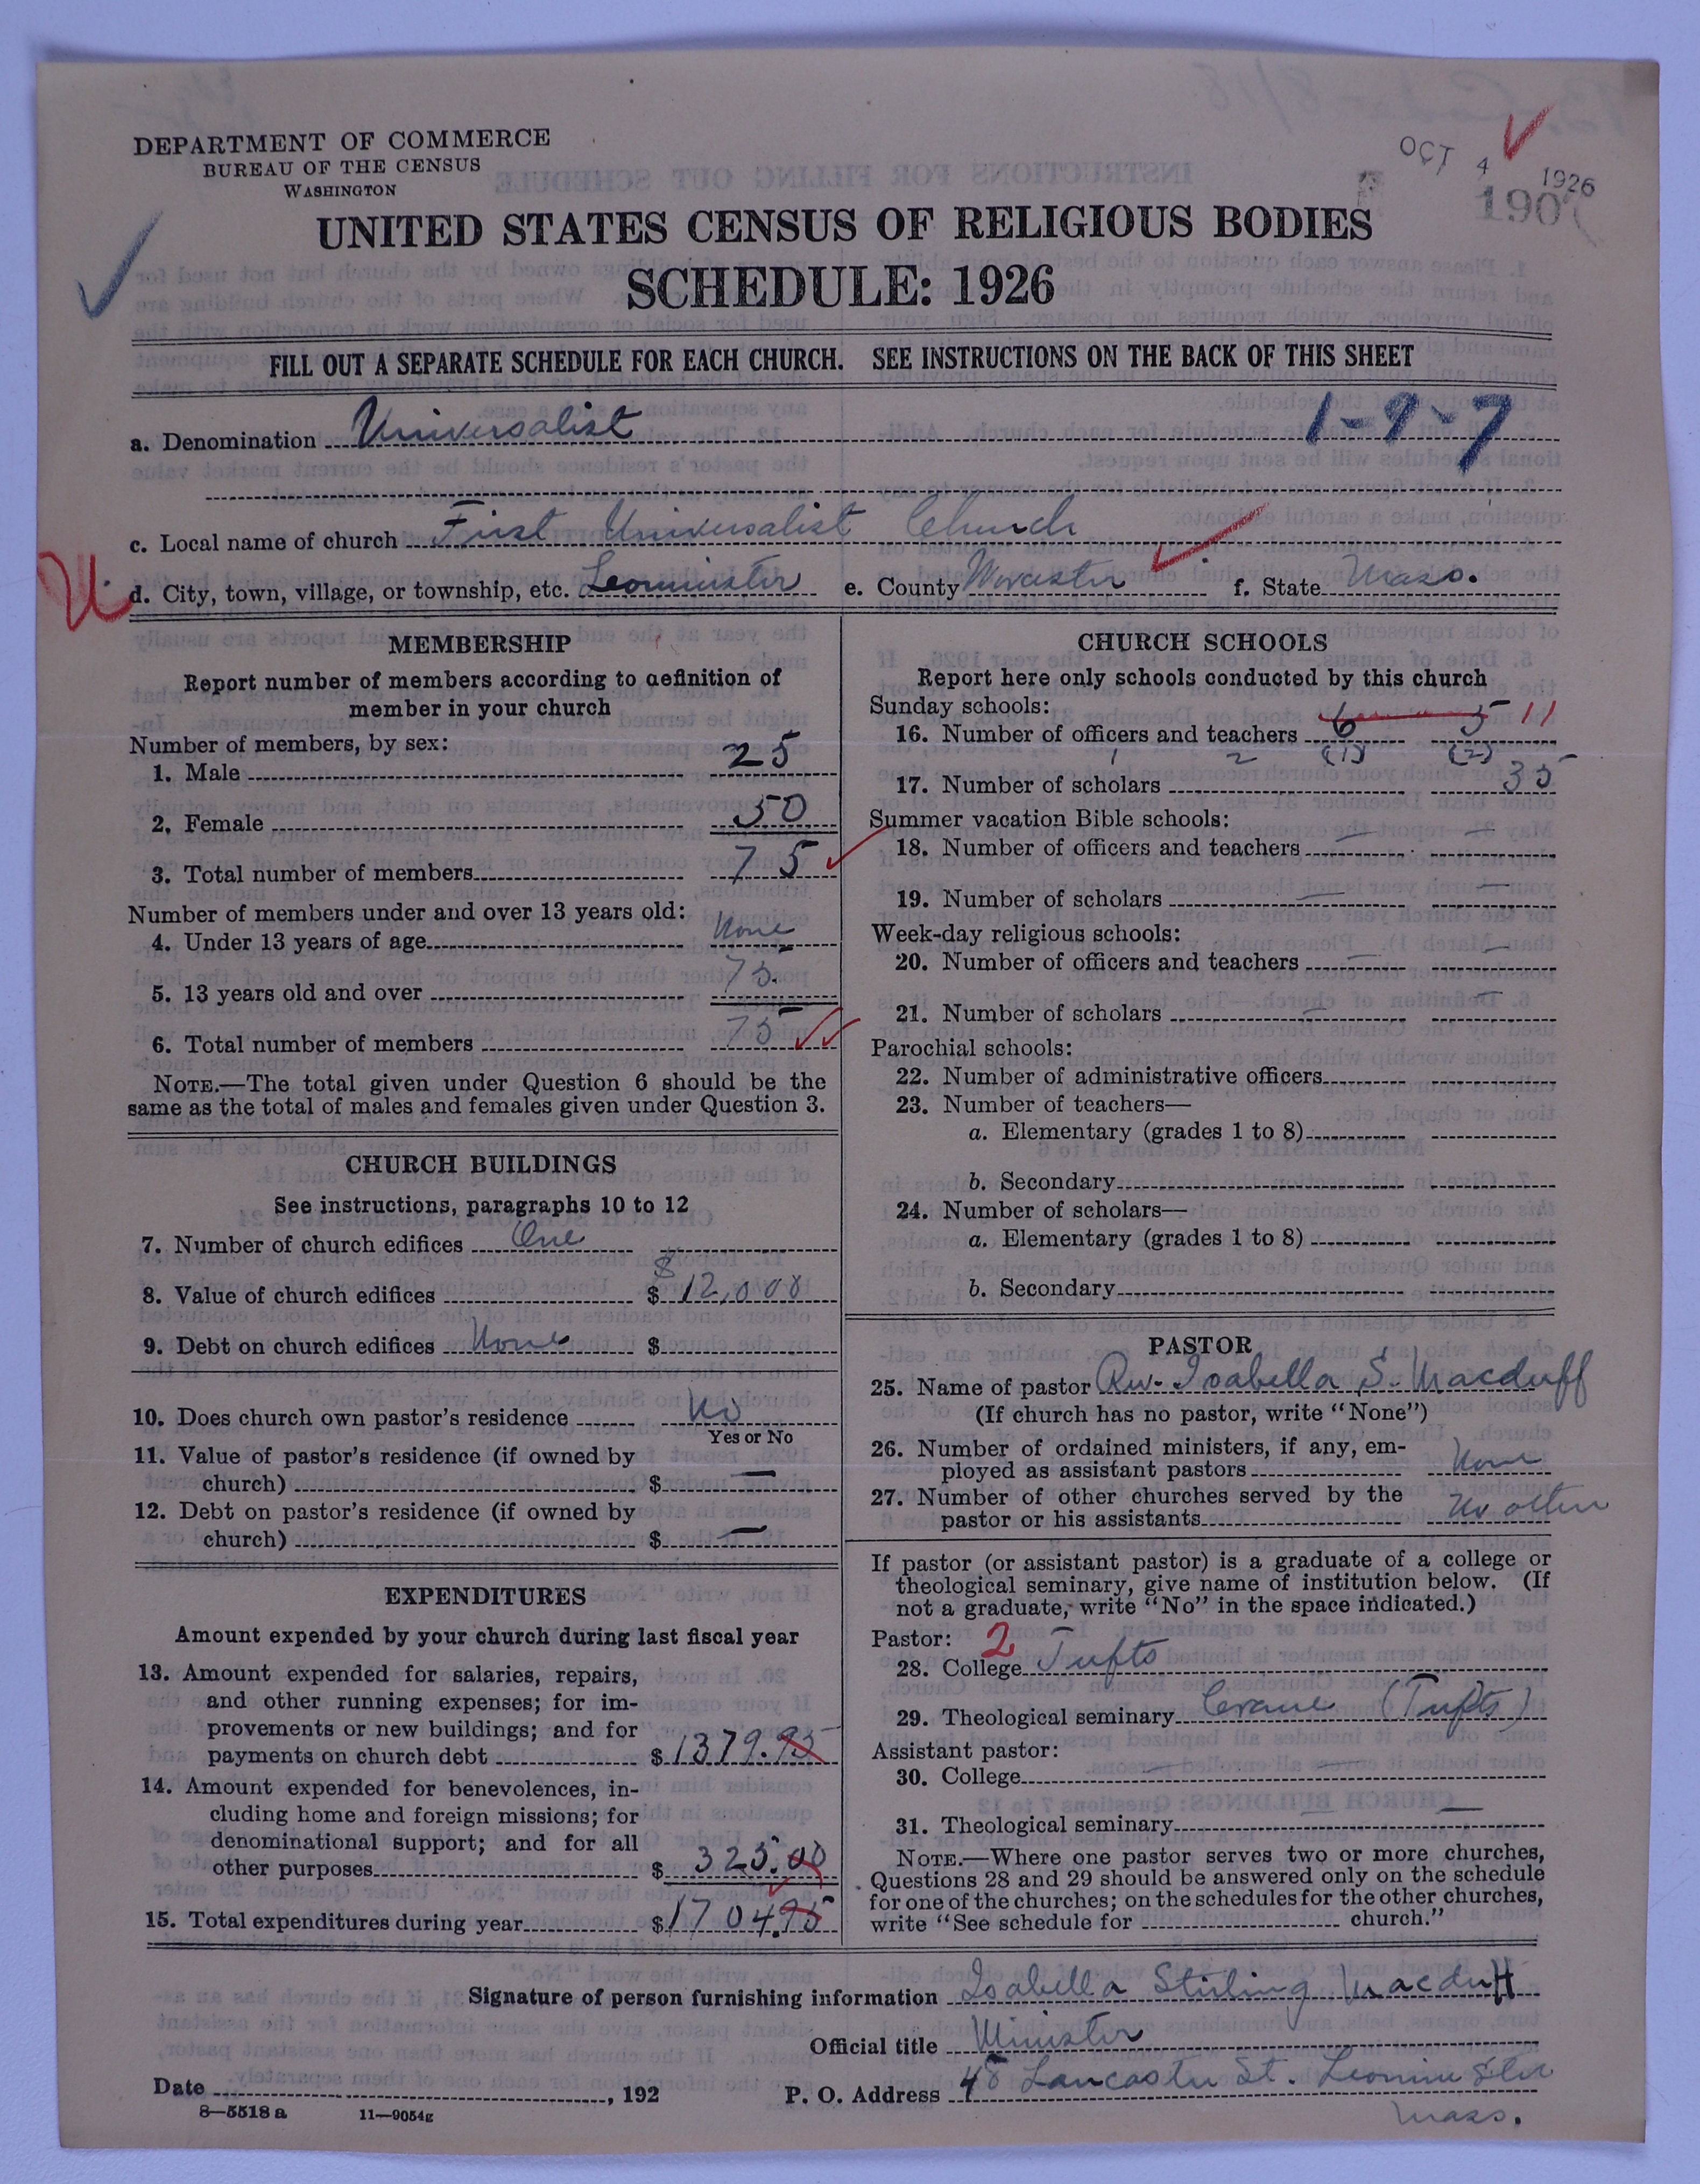 DEPARTMENT OF COMMERCE
BUREAU OF THE CENSUS
WASHINGTON
OCT 4 1926
190
UNITED STATES CENSUS OF RELIGIOUS BODIES
SCHEDULE: 1926
FILL OUT A SEPARATE SCHEDULE FOR EACH CHURCH. SEE INSTRUCTIONS ON THE BACK OF THIS SHEET
a. Denomination Universalist 1-9-7
c. Local name of church First Universalist Church
U
d. City, town, village, or township, etc. Leominster e. County Worcester f. State Mass.
MEMBERSHIP
Report number of members according to definition of
member in your church
Number of members, by sex:
1. Male 25
2. Female 50
3. Total number of members 75
Number of members under and over 13 years old:
4. Under 13 years of age None
5. 13 years old and over 75
6. Total number of members 75
NOTE.—The total given under Question 6 should be the
same as the total of males and females given under Question 3.
CHURCH BUILDINGS
See instructions, paragraphs 10 to 12
7. Number of church edifices One
8. Value of church edifices $ $12,000
9. Debt on church edifices None $
10. Does church own pastor's residence No
Yes or No
11. Value of pastor's residence (if owned by
church) $ —
12. Debt on pastor's residence (if owned by
church) $ —
EXPENDITURES
Amount expended by your church during last fiscal year
13. Amount expended for salaries, repairs,
and other running expenses; for im-
provements or new buildings; and for
payments on church debt $1379.95
14. Amount expended for benevolences, in-
cluding home and foreign missions; for
denominational support; and for all
other purposes $ 325.00
15. Total expenditures during year $1704.95
CHURCH SCHOOLS
Report here only schools conducted by this church
Sunday schools:
16. Number of officers and teachers 6 5 11
1 2 (1) (2)
17. Number of scholars 35
Summer vacation Bible schools:
18. Number of officers and teachers — —
19. Number of scholars — —
Week-day religious schools:
20. Number of officers and teachers — —
21. Number of scholars — —
Parochial schools:
22. Number of administrative officers
23. Number of teachers—
a. Elementary (grades 1 to 8)
b. Secondary
24. Number of scholars—
a. Elementary (grades 1 to 8)
b. Secondary
PASTOR
25. Name of pastor Rev. Isabella S. Macduff
(If church has no pastor, write "None")
26. Number of ordained ministers, if any, em-
ployed as assistant pastors None
27. Number of other churches served by the
pastor or his assistants No other
If pastor (or assistant pastor) is a graduate of a college or
theological seminary, give name of institution below. (If
not a graduate, write "No" in the space indicated.)
Pastor: 2
28. College Tufts
29. Theological seminary Crane (Tufts)
Assistant pastor:
30. College —
31. Theological seminary —
NOTE.—Where one pastor serves two or more churches,
Questions 28 and 29 should be answered only on the schedule
for one of the churches; on the schedules for the other churches,
write "See schedule for church."
Signature of person furnishing information Isabella Stirling Macduff
Official title Minister
Date , 192 P. O. Address 48 Lancaster St. Leominster
Mass.
8—5518 a 11—9054g